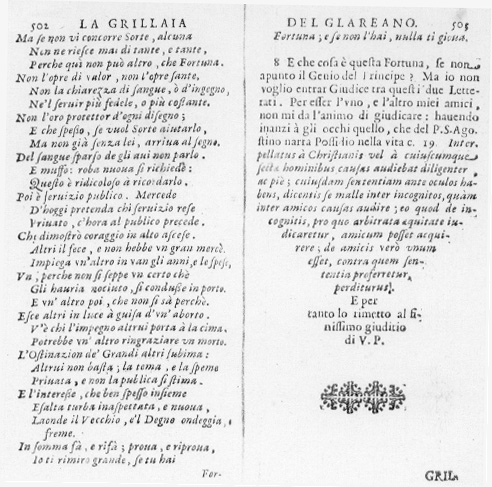 502 LA GRILLAIA
Ma se non vi concorre Sorte, alcuna
Non ne riesce mai di tante, e tante,
Perche qui non può altro, che Fortuna.
Non l'opre di valor, non l'opre sante,
Non la chiarezza di sangue, ò d'ingegno,
Ne'l servir più fedele, o più costante.
Non l'oro protettor d'ogni disegno;
E che spesso, se vuol Sorte aiutarlo,
Ma non già senza lei, arriua al segno.
Del sangue sparso de gli aui non parlo.
E muffo: roba nuoua si richiede:
Questo è ridicoloso à ricordarlo.
Poi è seruizio publico. Mercede
D'hoggi pretenda chi seruizio rese
Priuato, c'hora al publico precede.
Chi dimostrò coraggio in alto ascese.
Altri il fece, e non hebbe vn gran mercè.
Impiega vn'altro in van gli anni, e le spese,
Vn, perche non si seppe vn certo chè
Gli hauria nociuto, si condusse in porto.
E vn' altro poi, che non si sà perchè.
Esce altri in luce à guisa d'vn'aborto.
V'è chi l'impegno altrui porta à la cima.
Potrebbe vn' altro ringraziare vn morto.
L'Ostinazion de' Grandi altri sublima:
Altrui non basta; la tema, e la speme
Priuata, e non la publica si stima.
E l'interesse, che ben spesso insieme
Esalta turba inaspettata, e nuoua,
Laonde il Vecchio, e'l Degno ondeggia,
freme.
In somma fà, e rifà; proua, e riproua,
Io ti rimiro grande, se tu hai
For-
DEL GLAREANO. 503
Fortuna; e se non l'hai, nulla ti gioua.
8 E che cosa è questa Fortuna, se non
apunto il Genio del Principe? Ma io non
voglio entrar Giudice tra questi due Lette-
rati. Per esser l'vno, e l'altro mici amici,
non mi da l'animo di giudicare: hauendo
inanzi à gli occhi quello, che del P.S.Ago-
stino narra Possidio nella vita c. 19. Inter-
pellatus à Christianis vel à cuiuscumque
secta hominibus causas audiebat diligenter,
ac piè; cuiusdam sententiam ante oculos ha-
bens, dicentis se malle inter incognitos, quàm
inter amicos causas audire; eo quod de in-
cognitis, pro quo arbitrata æquitate iu-
dicaretur, amicum posset acqui-
rere; de amicis verò vnum
esset, contra quem sen-
tentia proferretur,
perditurus.
E per
tanto lo rimetto al fi-
nissimo giuditio
di V. P.
GRIL-